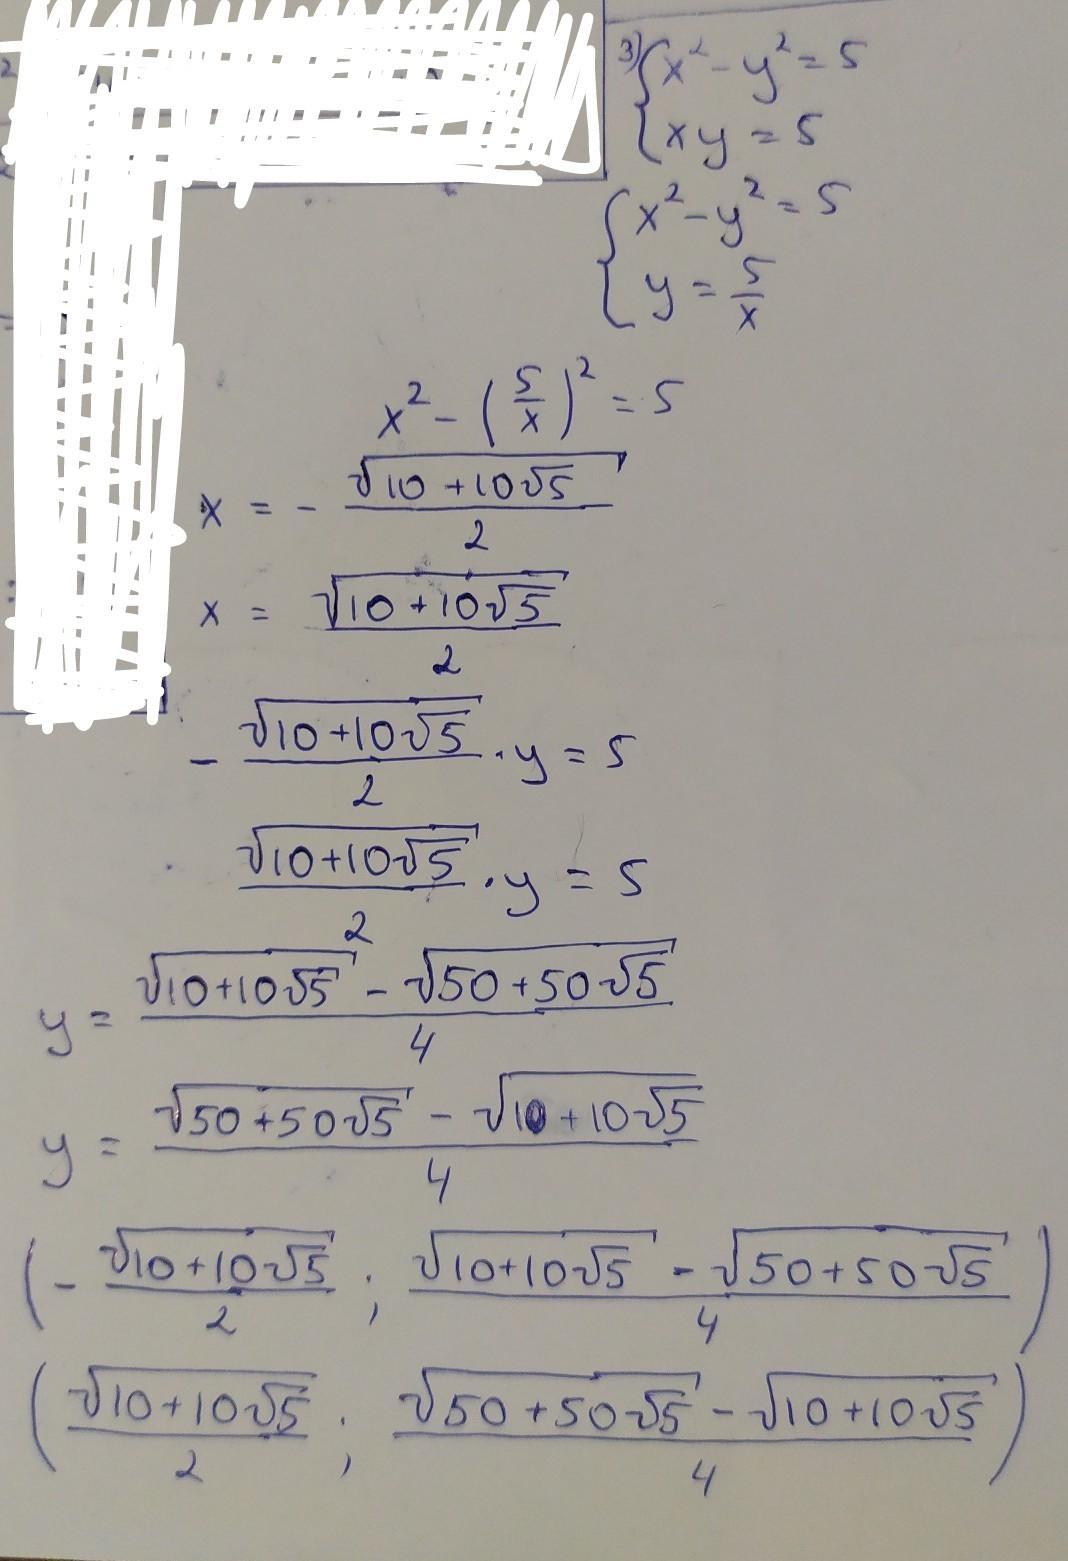 3) { x² - y² = 5
xy = 5
{ x² - y² = 5
y = 5/x
x² - (5/x)² = 5
x = - √(10 + 10√5)/2
x = √(10 + 10√5)/2
- √(10+10√5)/2 · y = 5
√(10+10√5)/2 · y = 5
y = (√(10+10√5) - √(50+50√5))/4
y = (√(50+50√5) - √(10+10√5))/4
(- √(10+10√5)/2 ; (√(10+10√5) - √(50+50√5))/4)
(√(10+10√5)/2 ; (√(50+50√5) - √(10+10√5))/4)